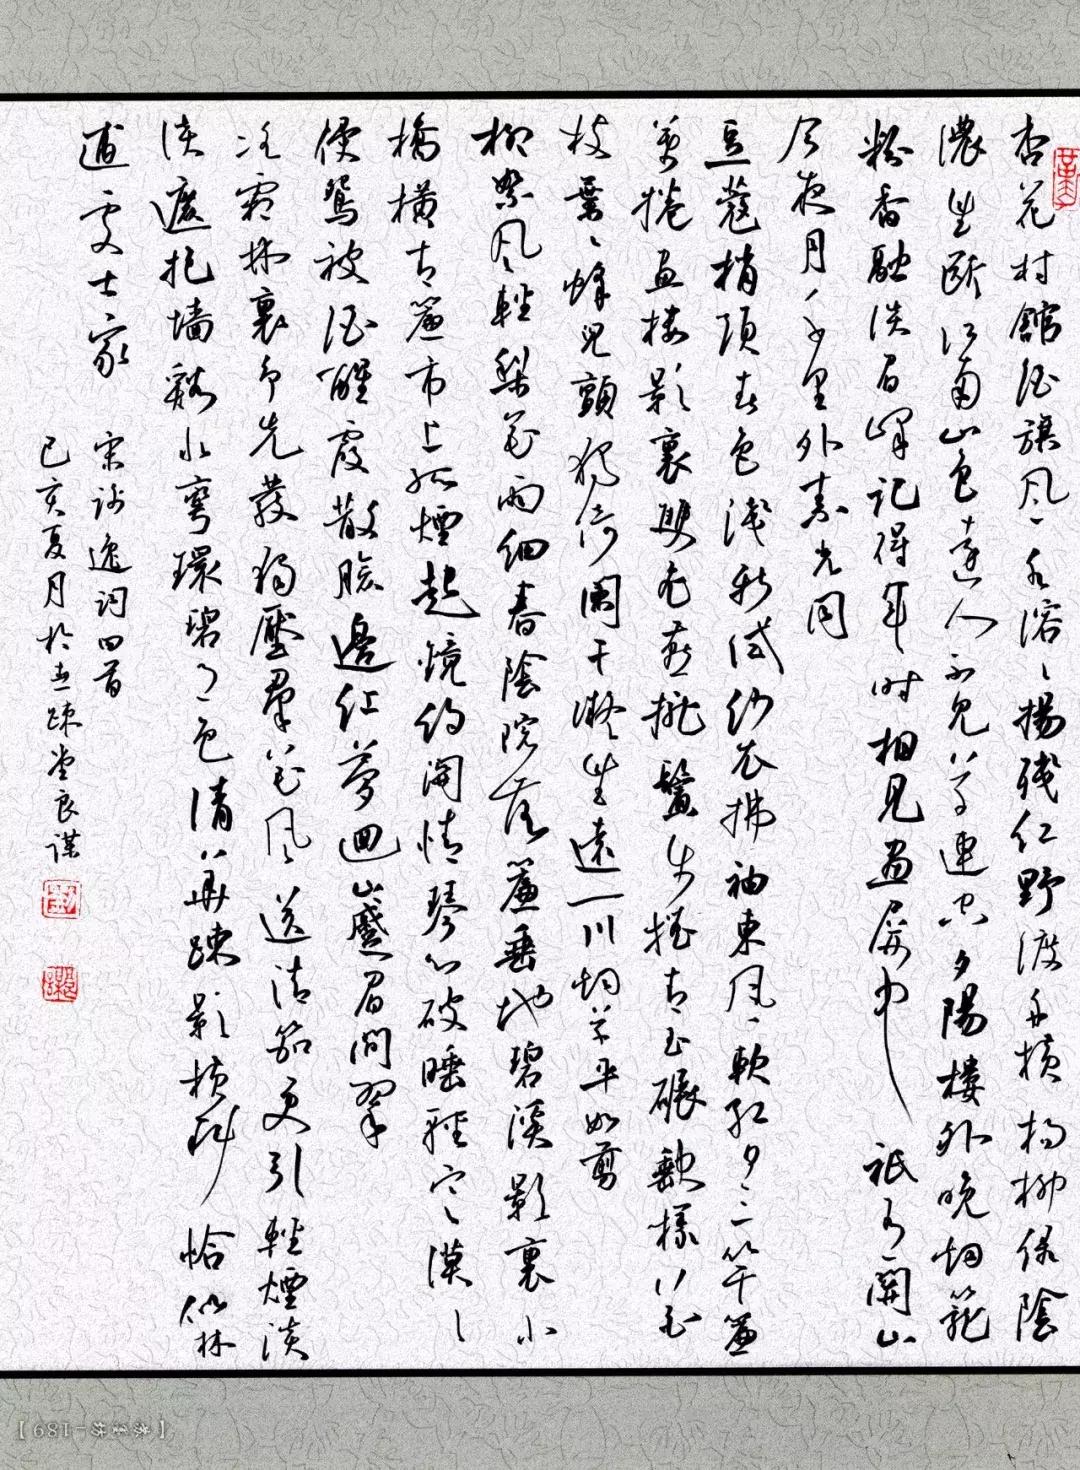 杏花村館酒旗風水溶〻揚殘紅野渡舟橫楊柳綠陰
濃望斷江南山色遠人不見草連空夕陽樓外晚烟籠
粉香融淡眉峰記得年時相見畫屏中祇有關山
今夜月千里外素光同
豆蔻梢頭春色淺新試紗衣拂袖東風軟紅日三竿簾
幕捲畫樓影裏雙飛燕攏鬢步搖青玉碾缺樣花
枝葉〻蜂兒顫獨倚闌干凝望遠一川烟草平如剪
柳絮風輕梨花雨細春陰院落簾垂地碧溪影裏小
橋橫青簾市上孤煙起鏡約關情琴心破睡輕寒漠〻
侵鴛被酒醒霞散臉邊紅夢迴山蹙眉間翠
冰霜林裏爭先發獨壓羣花風送清笳更引輕煙淡
淡遮抱墻谿水彎環碧月色清華疎影橫斜恰似林
逋處士家
宋謝逸詞四首
己亥夏月於疎堂良謀